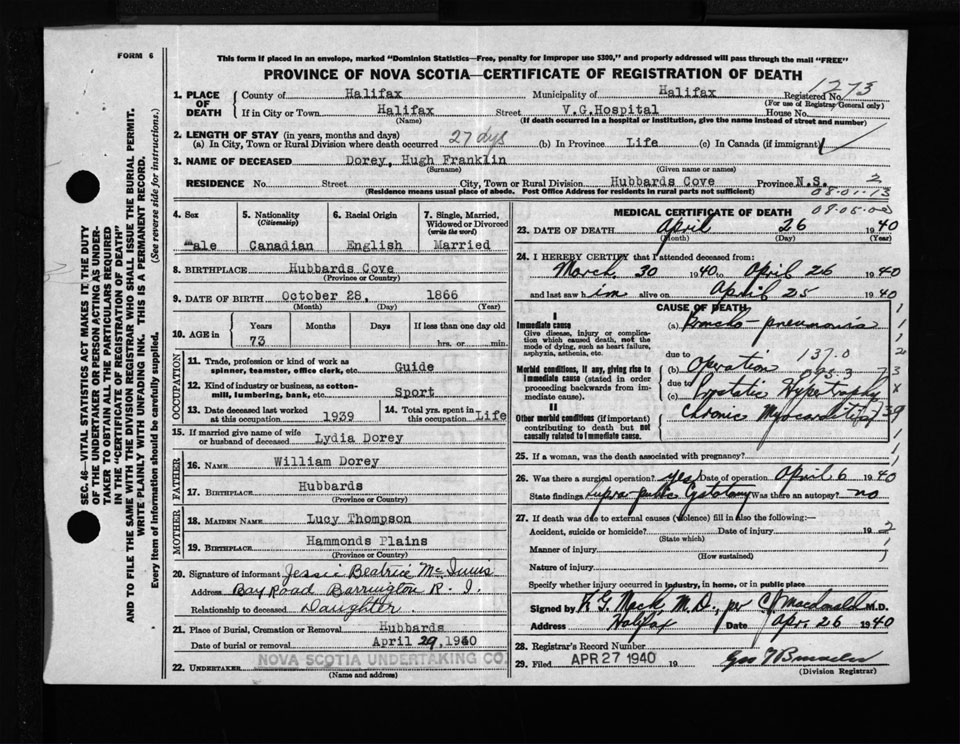 FORM 6
This form if placed in an envelope, marked "Dominion Statistics—Free, penalty for improper use $300," and properly addressed will pass through the mail "FREE"
PROVINCE OF NOVA SCOTIA—CERTIFICATE OF REGISTRATION OF DEATH
1273
1. PLACE OF DEATH County of Halifax Municipality of Halifax Registered No.
(For use of Registrar General only)
If in City or Town Halifax Street V.G.Hospital House No.
(Name) (If death occurred in a hospital or institution, give the name instead of street and number)
2. LENGTH OF STAY (in years, months and days)
(a) In City, Town or Rural Division where death occurred 27 dys (b) In Province Life (c) In Canada (if immigrant)
3. NAME OF DECEASED Dorey, Hugh Franklin
(Surname) (Given name or names)
RESIDENCE No. Street City, Town or Rural Division Hubbards Cove Province N.S. 2
(Residence means usual place of abode. Post Office Address for residents in rural parts not sufficient) 08-01-13
4. Sex Male
5. Nationality (Citizenship) Canadian
6. Racial Origin English
7. Single, Married, Widowed or Divorced (write the word) Married
8. BIRTHPLACE Hubbards Cove
(Province or Country)
9. DATE OF BIRTH October 28, 1866
(Month) (Day) (Year)
10. AGE in Years Months Days If less than one day old
73 hrs. or min.
OCCUPATION
11. Trade, profession or kind of work as spinner, teamster, office clerk, etc. Guide
12. Kind of industry or business, as cotton-mill, lumbering, bank, etc. Sport
13. Date deceased last worked at this occupation 1939
14. Total yrs. spent in this occupation Life
15. If married give name of wife or husband of deceased Lydia Dorey
FATHER
16. NAME William Dorey
17. BIRTHPLACE Hubbards
(Province or Country)
MOTHER
18. MAIDEN NAME Lucy Thompson
19. BIRTHPLACE Hammonds Plains
(Province or Country)
20. Signature of informant Jessie Beatrice McInnis
Address Bay Road Barrington R. I.
Relationship to deceased Daughter.
21. Place of Burial, Cremation or Removal Hubbards
Date of burial or removal April 29, 1940
22. UNDERTAKER NOVA SCOTIA UNDERTAKING CO.
(Name and address)
MEDICAL CERTIFICATE OF DEATH
23. DATE OF DEATH April 26 1940
(Month) (Day) (Year)
24. I HEREBY CERTIFY that I attended deceased from:
March 30 1940 to April 26 1940
and last saw him alive on April 25 1940
CAUSE OF DEATH
I
Immediate cause
Give disease, injury or complication which caused death, not the mode of dying, such as heart failure, asphyxia, asthenia, etc.
(a) Broncho-pneumonia
due to 137.0
Morbid conditions, if any, giving rise to immediate cause (stated in order proceeding backwards from immediate cause).
(b) Operation
due to
(c) Prostatic Hypertrophy
II
Other morbid conditions (if important) contributing to death but not causally related to immediate cause.
Chronic Myocarditis
25. If a woman, was the death associated with pregnancy?
26. Was there a surgical operation? yes Date of operation April 6 1940
State findings Supra-pubic Cystotomy Was there an autopsy? no
27. If death was due to external causes (violence) fill in also the following:—
Accident, suicide or homicide? Date of injury 19
(State which)
Manner of injury
(How sustained)
Nature of injury
Specify whether injury occurred in industry, in home, or in public place
Signed by K G. Mack, M.D., per C J Macdonald M.D.
Address Halifax Date Apr. 26 1940
28. Registrar's Record Number
29. Filed APR 27 1940 19
(Division Registrar)
SEC. 46—VITAL STATISTICS ACT MAKES IT THE DUTY
OF THE UNDERTAKER OR PERSON ACTING AS UNDERTAKER TO OBTAIN ALL THE PARTICULARS REQUIRED
IN THE "CERTIFICATE OF REGISTRATION OF DEATH"
AND TO FILE THE SAME WITH THE DIVISION REGISTRAR WHO SHALL ISSUE THE BURIAL PERMIT.
WRITE PLAINLY WITH UNFADING INK. THIS IS A PERMANENT RECORD.
Every item of information should be carefully supplied. (See reverse side for instructions.)